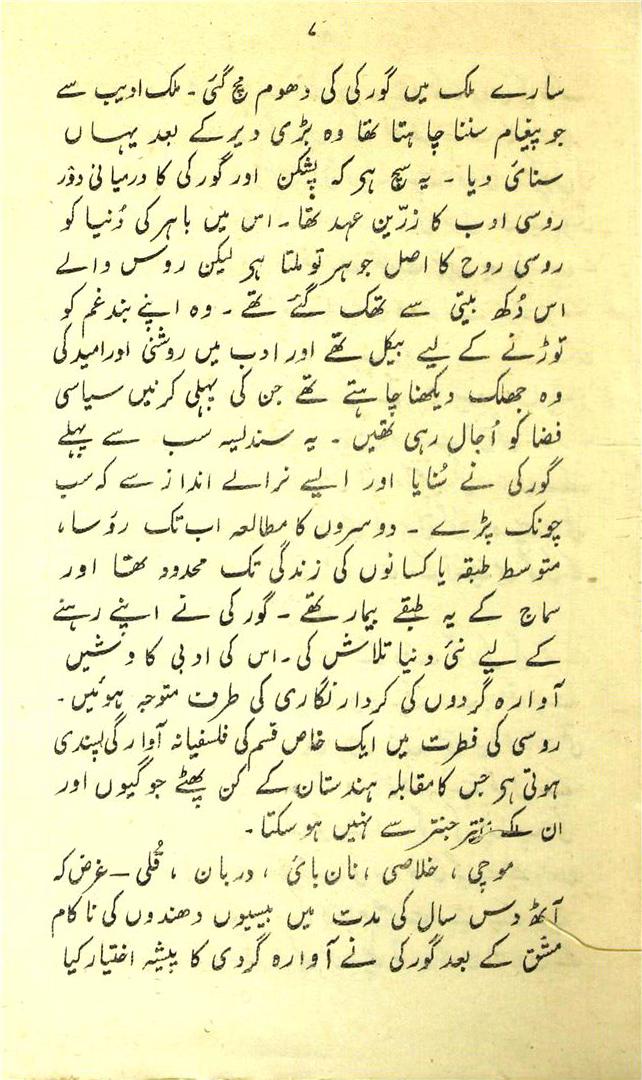 ۷
سارے ملک میں گورکی کی دھوم مچ گئی ۔ ملک ادیب سے
جو پیغام سننا چاہتا تھا وہ بڑی دیر کے بعد یہاں
سنائ دیا ۔ یہ سچ ہی کہ پشکن اور گورکی کا درمیانی دوٗر
روسی ادب کا زرّین عہد تھا ۔ اس میں باہر کی دُنیا کو
روسی روح کا اصل جوہر تو ملتا ہی لیکن روس والے
اس دُکھ بیتی سے تھک گئے تھے ۔ وہ اپنے بندِ غم کو
توڑنے کے لیے بیکل تھے اور ادب میں روشنی اور امید کی
وہ جھلک دیکھنا چاہتے تھے جن کی پہلی کرنیں سیاسی
فضا کو اُجال رہی تھیں ۔ یہ سندلیسہ سب سے پہلے
گورکی نے سُنایا اور ایسے نرالے انداز سے کہ سب
چونک پڑے ۔ دوسروں کا مطالعہ اب تک رؤسا،
متوسط طبقہ یا کسانوں کی زندگی تک محدود تھا اور
سماج کے یہ طبقے بیمار تھے ۔ گورکی نے اپنے رہنے
کے لیے نئ دنیا تلاش کی ۔ اس کی ادبی کاوشیں
آوارہ گردوں کی کردار نگاری کی طرف متوجہ ہوئیں ۔
روسی کی فطرت میں ایک خاص قسم کی فلسفیانہ آوارگی پسندی
ہوتی ہی جس کا مقابلہ ہندستان کے کن پھٹے جوگیوں اور
ان کے جنتر سے نہیں ہو سکتا ۔
موچی ، خلاصی ، نان بائ ، دربان ، قُلی – غرض کہ
آٹھ دس سال کی مدت میں بیسیوں دھندوں کی ناکام
مشق کے بعد گورکی نے آوارہ گردی کا پیشہ اختیار کیا